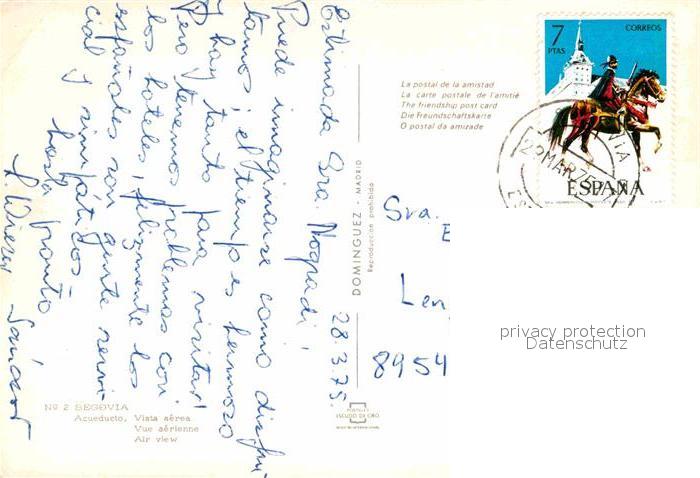 28.3.75.
Estimada Sra. Nogradi!
Puede imaginarse como disfru-
tamos; el tiempo es hermoso
y hay tanto para visitar!
Pero tenemos problemas con
los hoteles, felizmente los
españoles son gente servi-
cial y simpáticos.
hasta pronto
Nº 2 SEGOVIA
Acueducto, Vista aérea
Vue aérienne
Air view
DOMINGUEZ - MADRID
Reproducción prohibida
ESCUDO DE ORO
La postal de la amistad
La carte postale de l'amitié
The friendship post card
Die Freundschaftskarte
O postal da amizade
7 PTAS
CORREOS
ESPAÑA
29 MAR 75
Sra.
Len
8954
privacy protection
Datenschutz